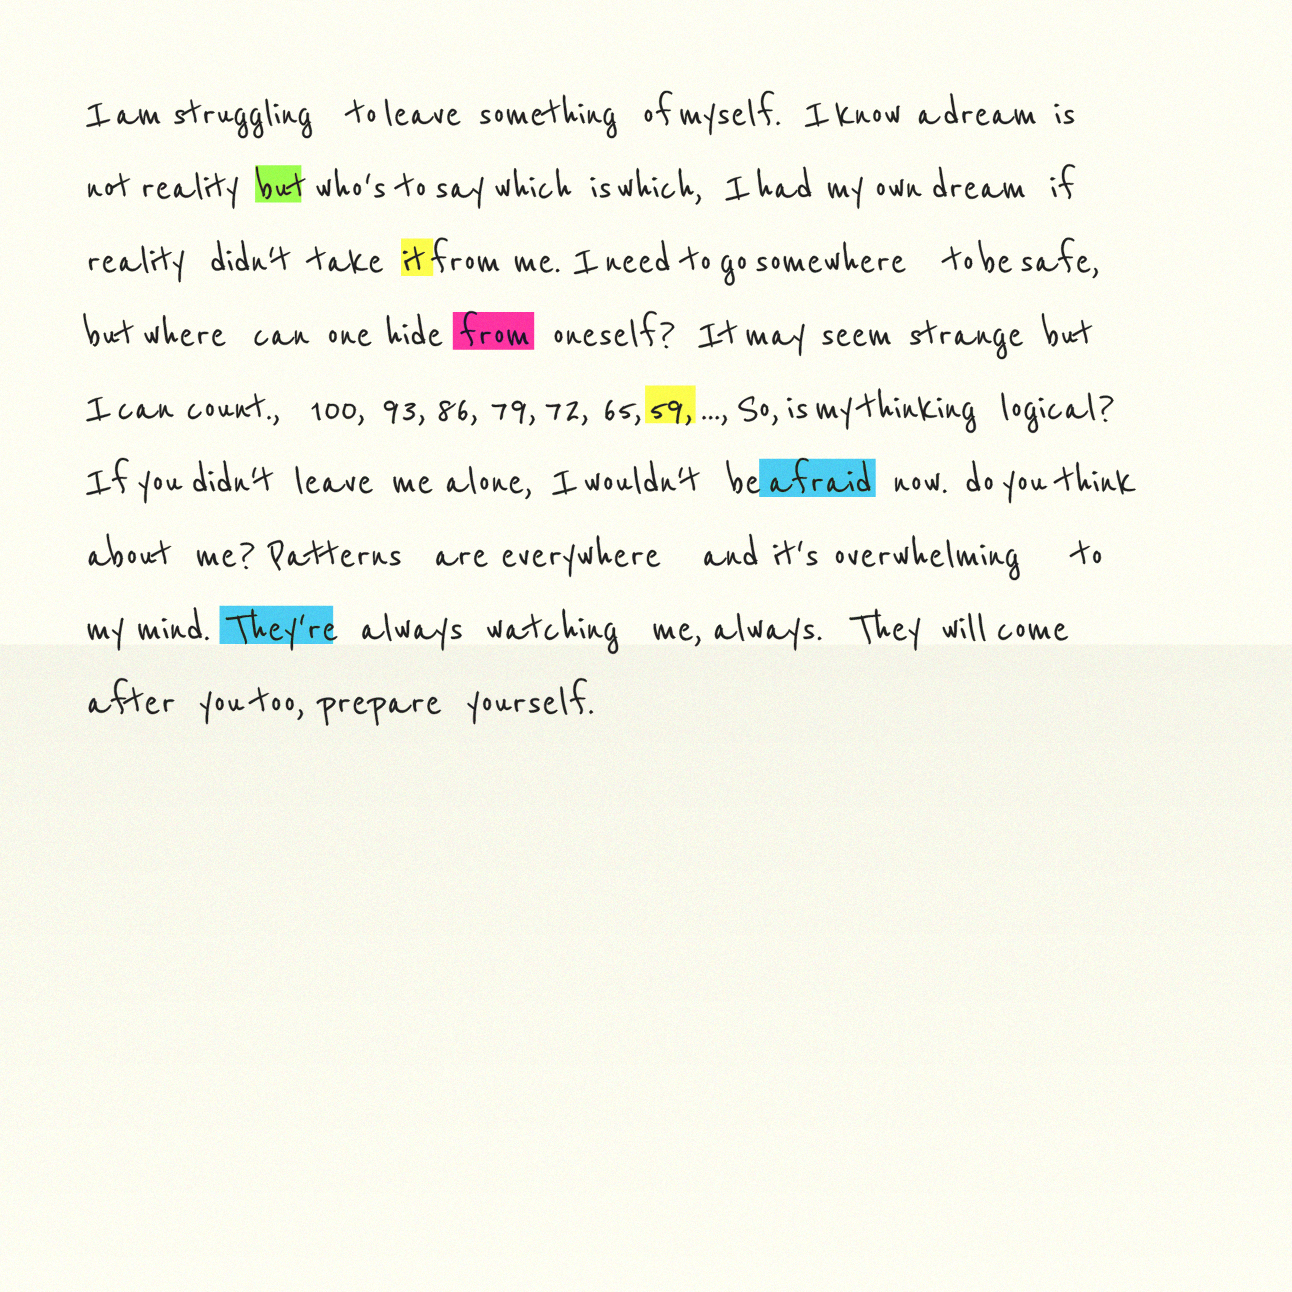 I am struggling to leave something of myself. I know a dream is
not reality but who's to say which is which, I had my own dream if
reality didn't take it from me. I need to go somewhere to be safe,
but where can one hide from oneself? It may seem strange but
I can count., 100, 93, 86, 79, 72, 65, 59, ..., So, is my thinking logical?
If you didn't leave me alone, I wouldn't be afraid now. do you think
about me? Patterns are everywhere and it's overwhelming to
my mind. They're always watching me, always. They will come
after you too, prepare yourself.